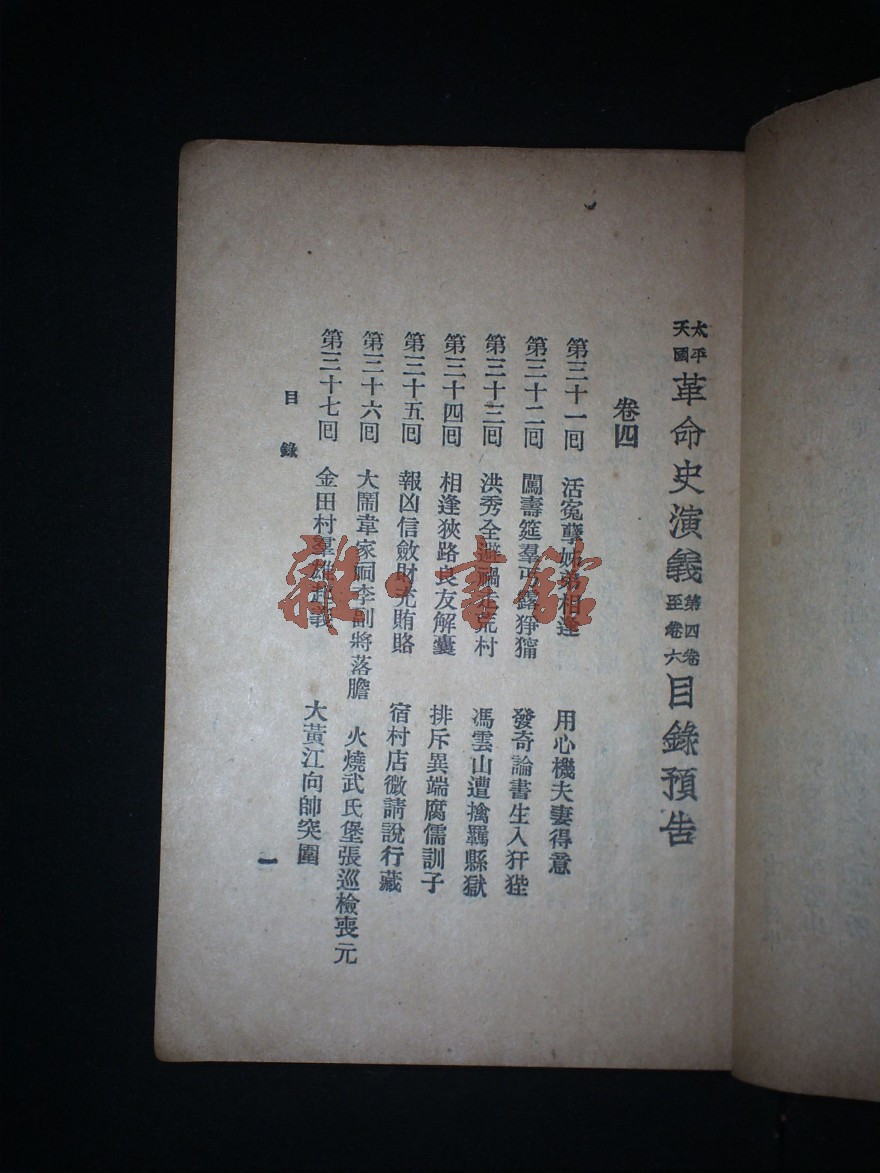 太平天國革命史演義第四卷至卷六目錄預告
卷四
第三十一囘 活冤孽姊弟相逢 用心機夫妻得意
第三十二囘 鬧壽筵羣丐露猙獰 發奇論書生入犴狴
第三十三囘 洪秀全避禍走荒村 馮雲山遭擒羈縣獄
第三十四囘 相逢狹路良友解囊 排斥異端腐儒訓子
第三十五囘 報凶信斂財充賄賂 宿村店微請說行藏
第三十六囘 大鬧韋家祠李副將落膽 火燒武氏堡張巡檢喪元
第三十七囘 金田村羣雄起義 大黃江向帥突圍
目錄
一
雜·書館